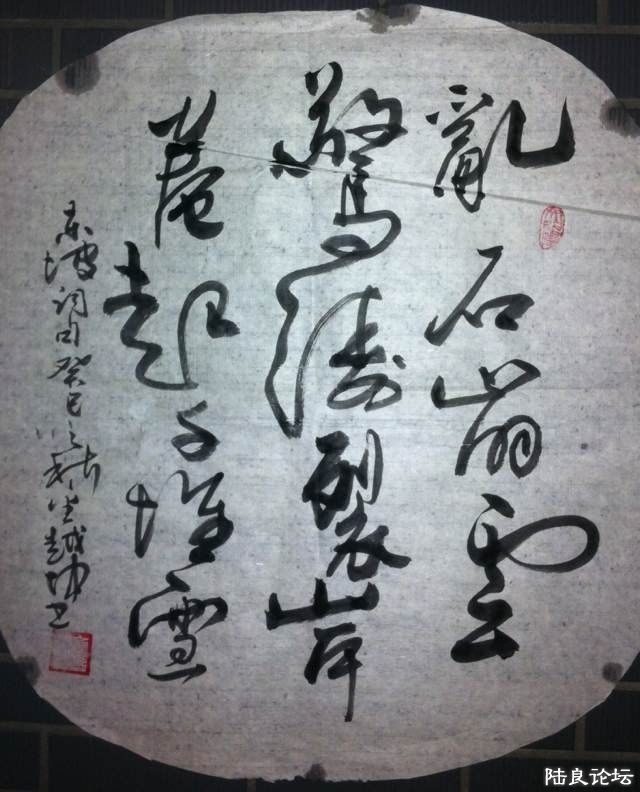 亂石崩雲
驚濤裂岸
卷起千堆雪
東坡詞句癸巳之秋越坤书
陆良论坛